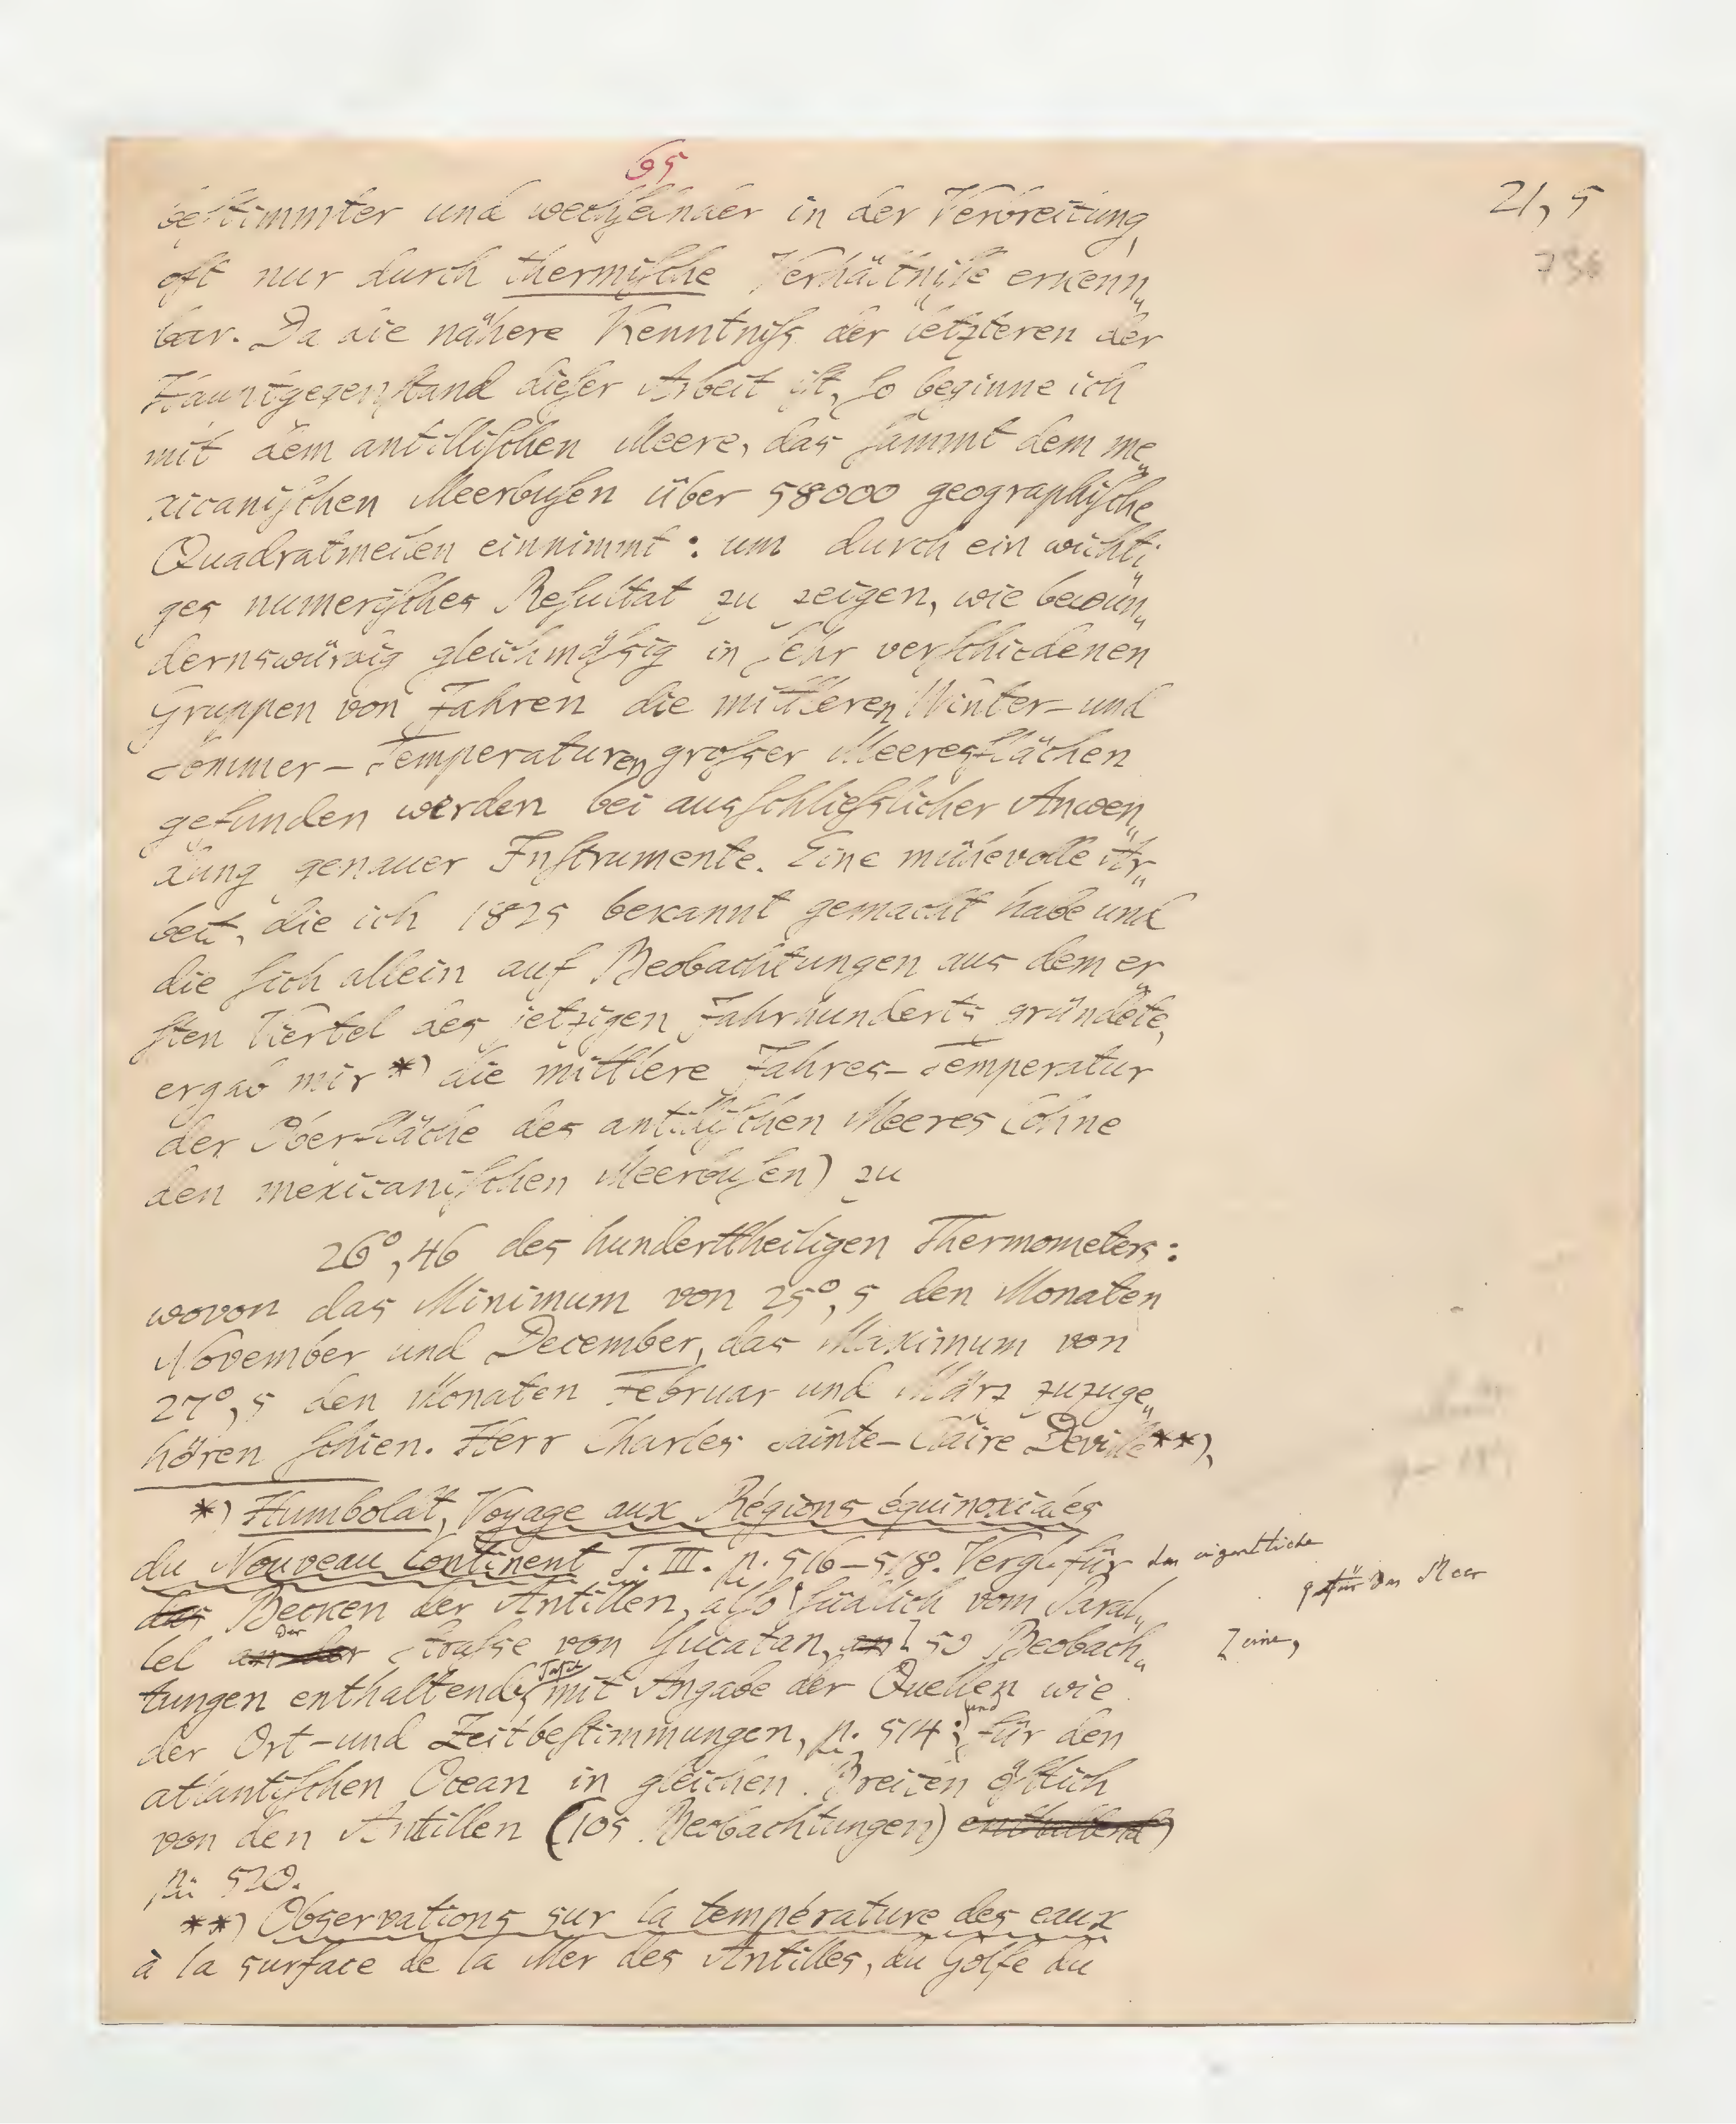 65
21, 5
736
beſtimmter und wechſelnder in der Verbreitung,
oft nur durch thermiſche Verhältniſſe erkenn„
bar. Da die nähere Kenntniſs der letzteren der
Hauptgegenſtand dieſer Arbeit iſt, ſo beginne ich
mit dem antilliſchen Meere, das ſammt dem me„
xicaniſchen Meerbuſen über 58000 geographiſche
Quadratmeilen einnimmt: um durch ein wichti„
ges numeriſches Reſultat zu zeigen, wie bewun„
dernswürdig gleichmäſsig in ſehr verſchiedenen
Gruppen von Jahren die mittleren Winter- und
Sommer-Temperaturen groſser Meeresflächen
gefunden werden bei ausſchlieſslicher Anwen„
dung genauer Inſtrumente. Eine mühevolle Ar„
beit, die ich 1825 bekannt gemacht habe und
die ſich allein auf Beobachtungen aus dem er„
ſten Viertel des jetzigen Jahrhunderts gründete,
ergab mir *) die mittlere Jahres-Temperatur
der Oberfläche des antilliſchen Meeres (ohne
den mexicaniſchen Meerbuſen) zu
26°,46 des hunderttheiligen Thermometers:
wovon das Minimum von 25°,5 den Monaten
November und December, das Maximum von
27°,5 den Monaten Februar und März zuzuge„
hören ſchien. Herr Charles Sainte-Claire Deville **),
*) Humboldt, Voyage aux Régions équinoxiales
du Nouveau Continent T. III. p. 516–518. Vergl. für das eigentliche
das Becken der Antillen, alſo ſüdlich vom Paral„
lel der Straſse von Yucatan, 59 Beobach„ eine,
tungen enthaltend, Tafel mit Angabe der Quellen wie
der Ort- und Zeitbeſtimmungen, p. 514; und für den
atlantiſchen Ocean in gleichen Breiten öſtlich
von den Antillen (105 Beobachtungen) enthaltend)
p. 520.
**) Observations sur la température des eaux
à la surface de la Mer des Antilles, du Golfe du